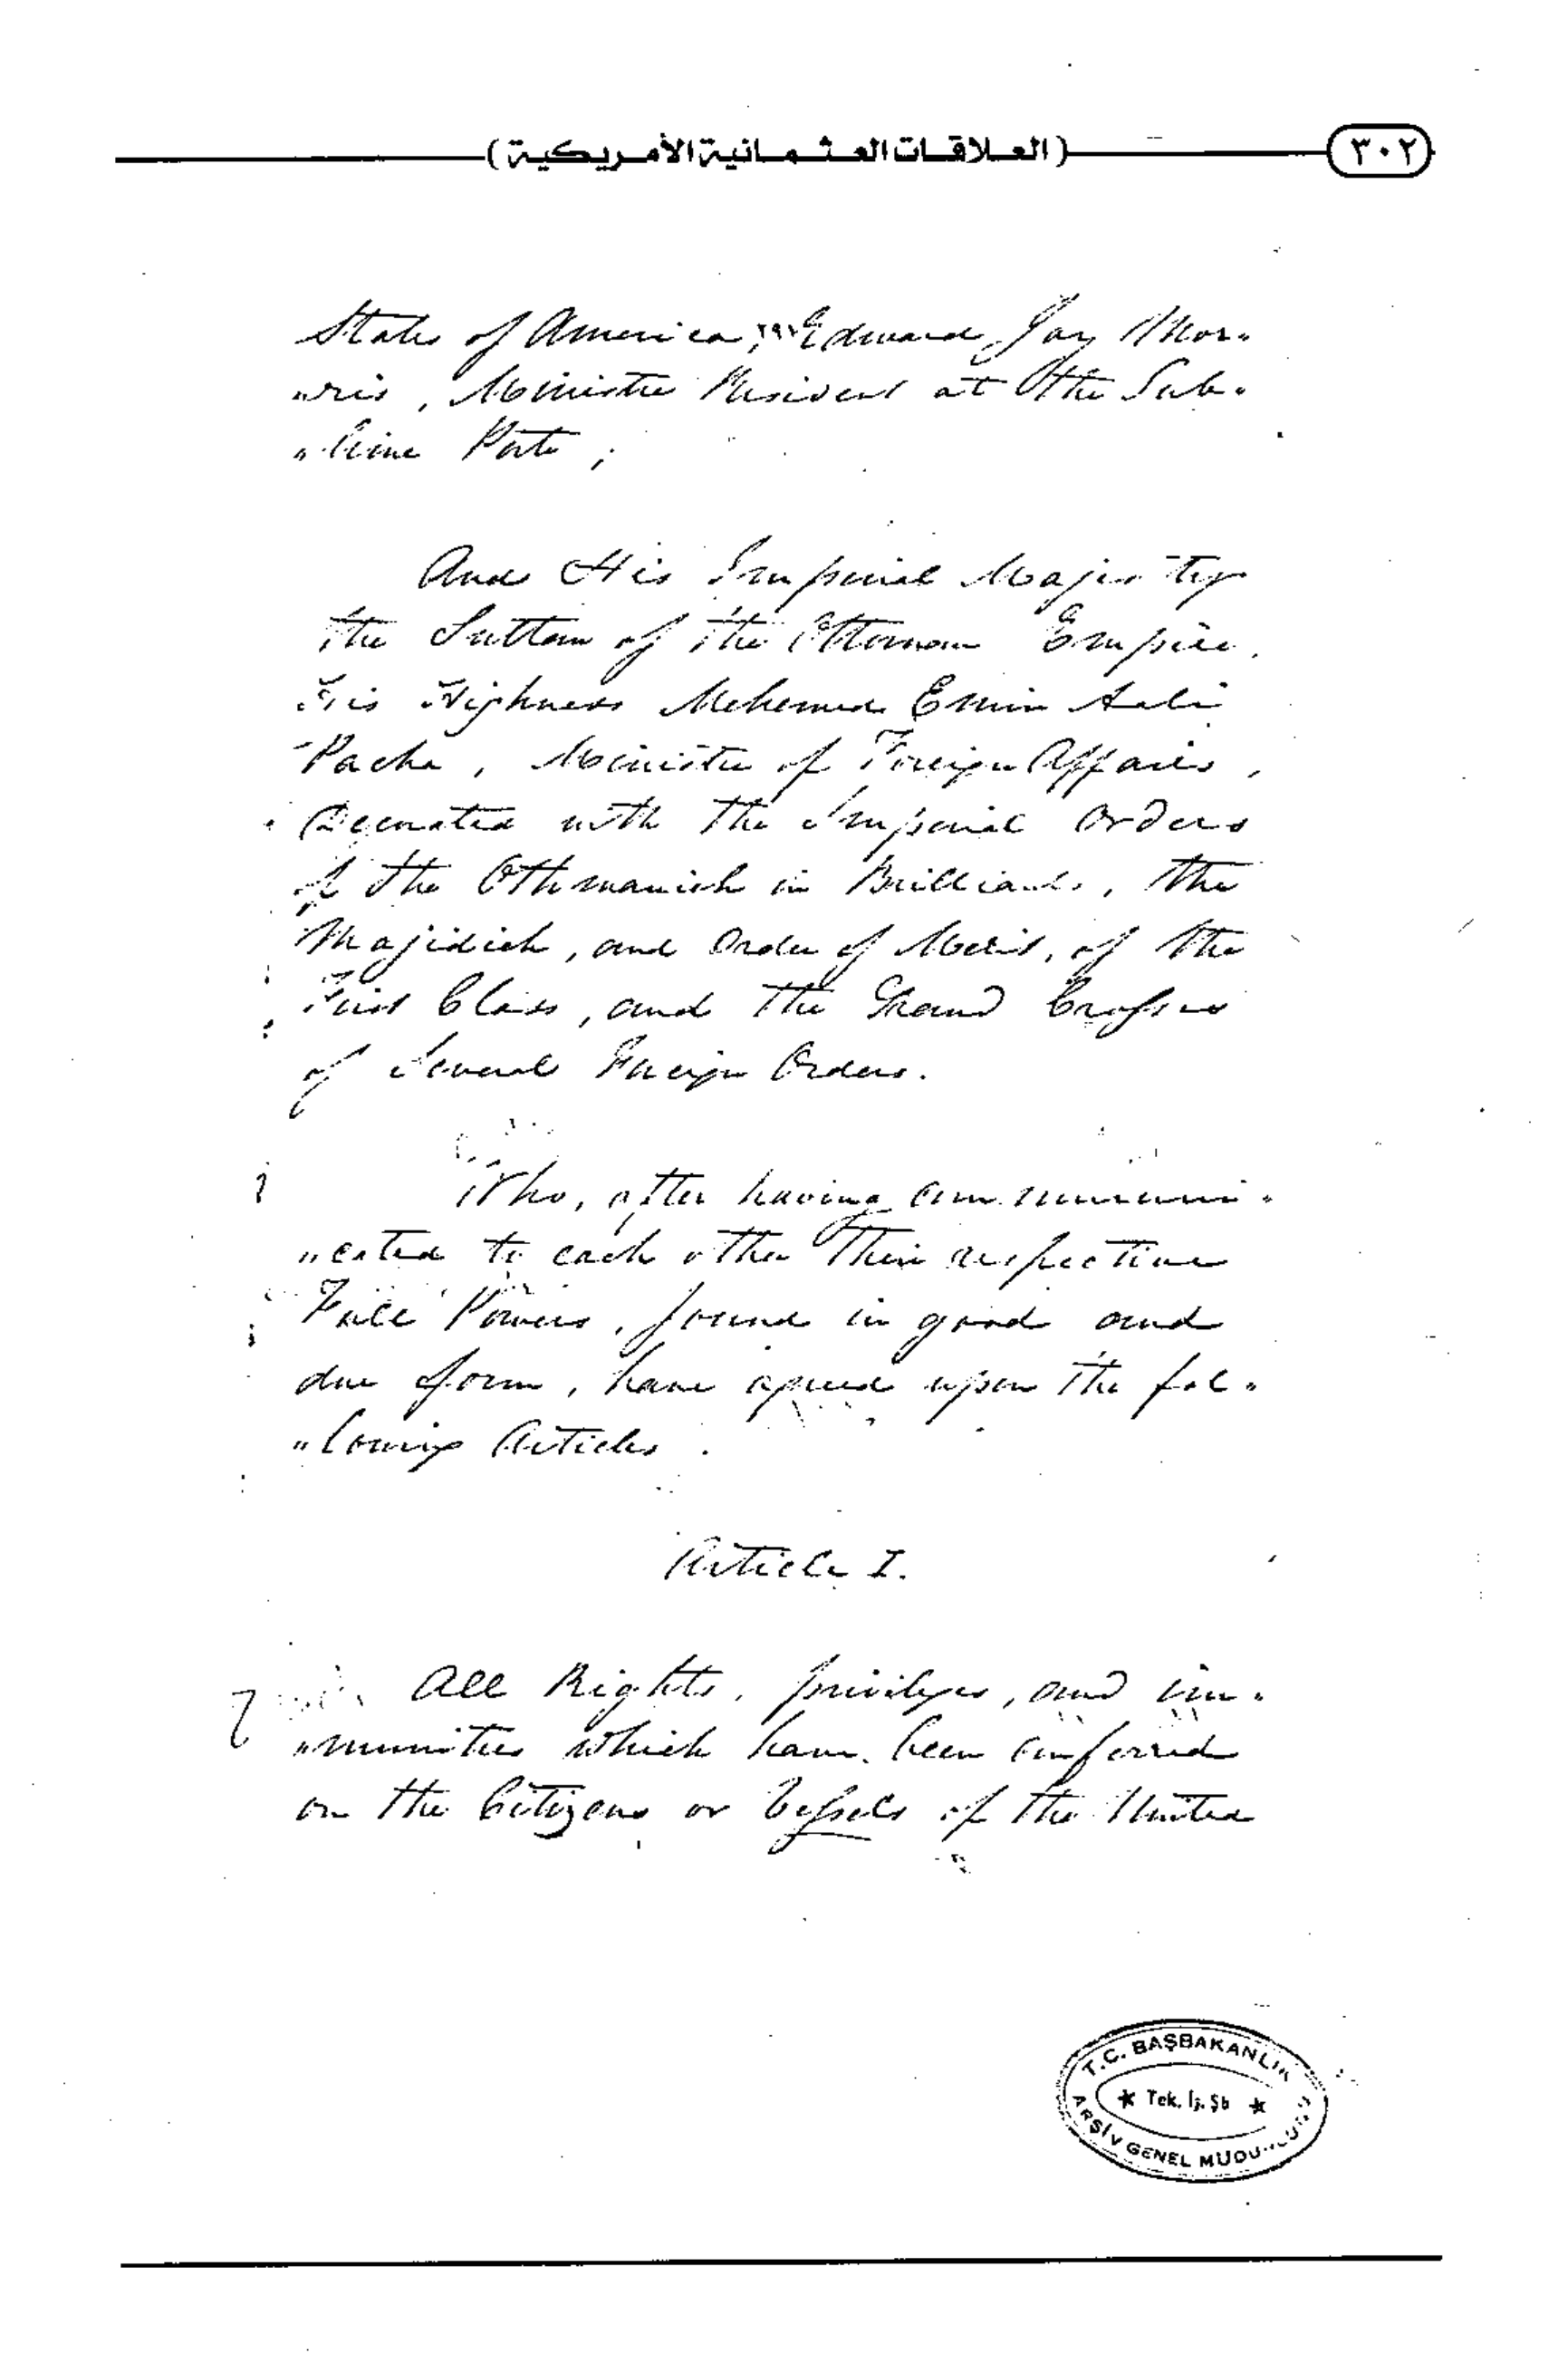 (العلاقات العثمانية الأمريكية)
٣٠٢
States of America, Edward Joy Mor-
"ris, Minister Resident at the Sub-
"lime Porte ;
And His Imperial Majesty
the Sultan of the Ottoman Empire.
His Highness Mehemed Emin Aali
Pacha, Minister of Foreign Affairs,
Decorated with the Imperial Orders
of the Othmanieh in Brilliants, the
Majidieh, and Order of Merit, of the
First Class, and the Grand Crosses
of Several Foreign Orders.
Who, after having communi-
"cated to each other their respective
Full Powers, found in good and
due form, have agreed upon the fol-
"lowing Articles.
Article I.
All Rights, privileges, and im-
"munities which have been conferred
on the Citizens or Vessels of the United
T.C. BAŞBAKANLIK
★ Tek. İş. Şb ★
ARŞİV GENEL MÜDÜRLÜĞÜ